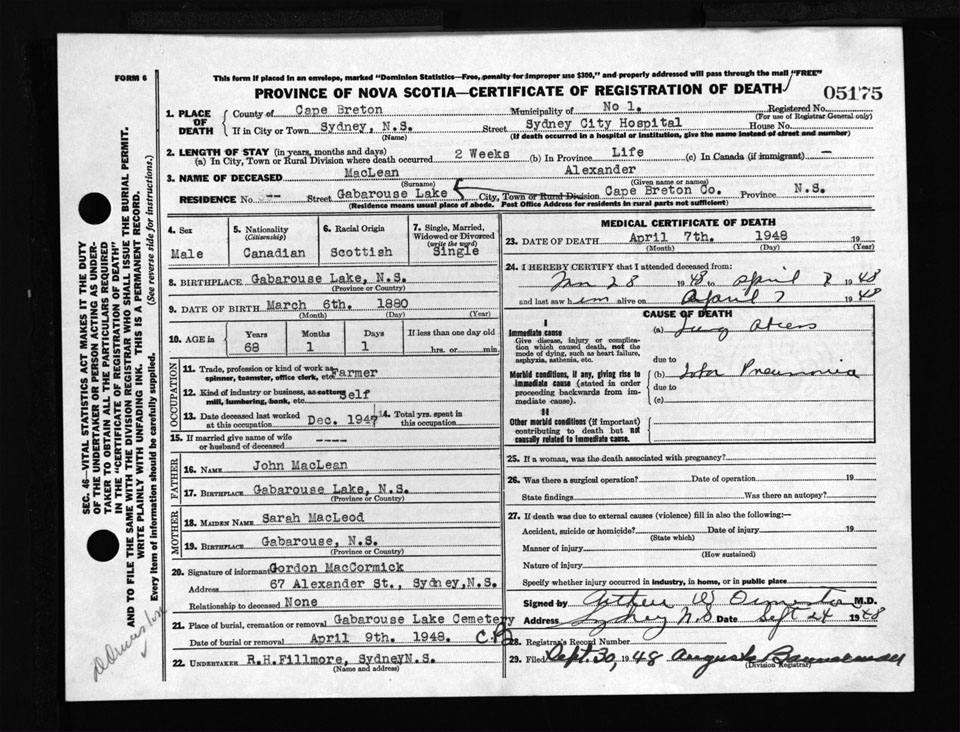 FORM 6
This form if placed in an envelope, marked "Dominion Statistics—Free, penalty for improper use $300," and properly addressed will pass through the mail "FREE"
PROVINCE OF NOVA SCOTIA—CERTIFICATE OF REGISTRATION OF DEATH
05175
1. PLACE OF DEATH County of Cape Breton Municipality of No 1. Registered No.
(For use of Registrar General only)
If in City or Town Sydney, N.S. Street Sydney City Hospital House No.
(Name) (If death occurred in a hospital or institution, give the name instead of street and number)
2. LENGTH OF STAY (in years, months and days)
(a) In City, Town or Rural Division where death occurred 2 Weeks (b) In Province Life (c) In Canada (if immigrant) —
3. NAME OF DECEASED MacLean Alexander
(Surname) (Given name or names)
RESIDENCE No. --- Street Gabarouse Lake City, Town or Rural Division Cape Breton Co. Province N.S.
(Residence means usual place of abode. Post Office Address for residents in rural parts not sufficient)
4. Sex
Male
5. Nationality
(Citizenship)
Canadian
6. Racial Origin
Scottish
7. Single, Married, Widowed or Divorced
(write the word)
Single
8. BIRTHPLACE Gabarouse Lake, N.S.
(Province or Country)
9. DATE OF BIRTH March 6th. 1880
(Month) (Day) (Year)
10. AGE in Years Months Days If less than one day old
68 1 1 hrs. or min.
OCCUPATION
11. Trade, profession or kind of work as spinner, teamster, office clerk, etc. Farmer
12. Kind of industry or business, as cotton mill, lumbering, bank, etc. Self
13. Date deceased last worked at this occupation Dec. 1947
14. Total yrs. spent in this occupation
15. If married give name of wife or husband of deceased ----
FATHER
16. NAME John MacLean
17. BIRTHPLACE Gabarouse Lake, N.S.
(Province or Country)
MOTHER
18. MAIDEN NAME Sarah MacLeod
19. BIRTHPLACE Gabarouse, N.S.
(Province or Country)
20. Signature of informant Gordon MacCormick
Address 67 Alexander St., Sydney, N.S.
Relationship to deceased None
21. Place of burial, cremation or removal Gabarouse Lake Cemetery
Date of burial or removal April 9th. 1948. C.B.
22. UNDERTAKER R.H.Fillmore, Sydney N.S.
(Name and address)
MEDICAL CERTIFICATE OF DEATH
23. DATE OF DEATH April 7th. 1948 19
(Month) (Day) (Year)
24. I HEREBY CERTIFY that I attended deceased from:
Jan 28 1948 to April 8 1948
and last saw him alive on April 7 1948
CAUSE OF DEATH
I
Immediate cause
Give disease, injury or complication which caused death, not the mode of dying, such as heart failure, asphyxia, asthenia, etc.
(a) Lung
due to
Morbid conditions, if any, giving rise to immediate cause (stated in order proceeding backwards from immediate cause).
(b) Lobar Pneumonia
due to
(c)
II
Other morbid conditions (if important) contributing to death but not causally related to immediate cause.
25. If a woman, was the death associated with pregnancy?
26. Was there a surgical operation? Date of operation 19
State findings Was there an autopsy?
27. If death was due to external causes (violence) fill in also the following:—
Accident, suicide or homicide? Date of injury 19
(State which)
Manner of injury
(How sustained)
Nature of injury
Specify whether injury occurred in industry, in home, or in public place
Signed by Arthur W Ormiston M.D.
Address Sydney N.S Date Sept 24 1948
28. Registrar's Record Number
29. Filed Sept. 30, 1948 Augusta
(Division Registrar)
SEC. 46—VITAL STATISTICS ACT MAKES IT THE DUTY
OF THE UNDERTAKER OR PERSON ACTING AS UNDER-
TAKER TO OBTAIN ALL THE PARTICULARS REQUIRED
IN THE "CERTIFICATE OF REGISTRATION OF DEATH"
AND TO FILE THE SAME WITH THE DIVISION REGISTRAR WHO SHALL ISSUE THE BURIAL PERMIT.
WRITE PLAINLY WITH UNFADING INK. THIS IS A PERMANENT RECORD.
Every item of information should be carefully supplied. (See reverse side for instructions.)